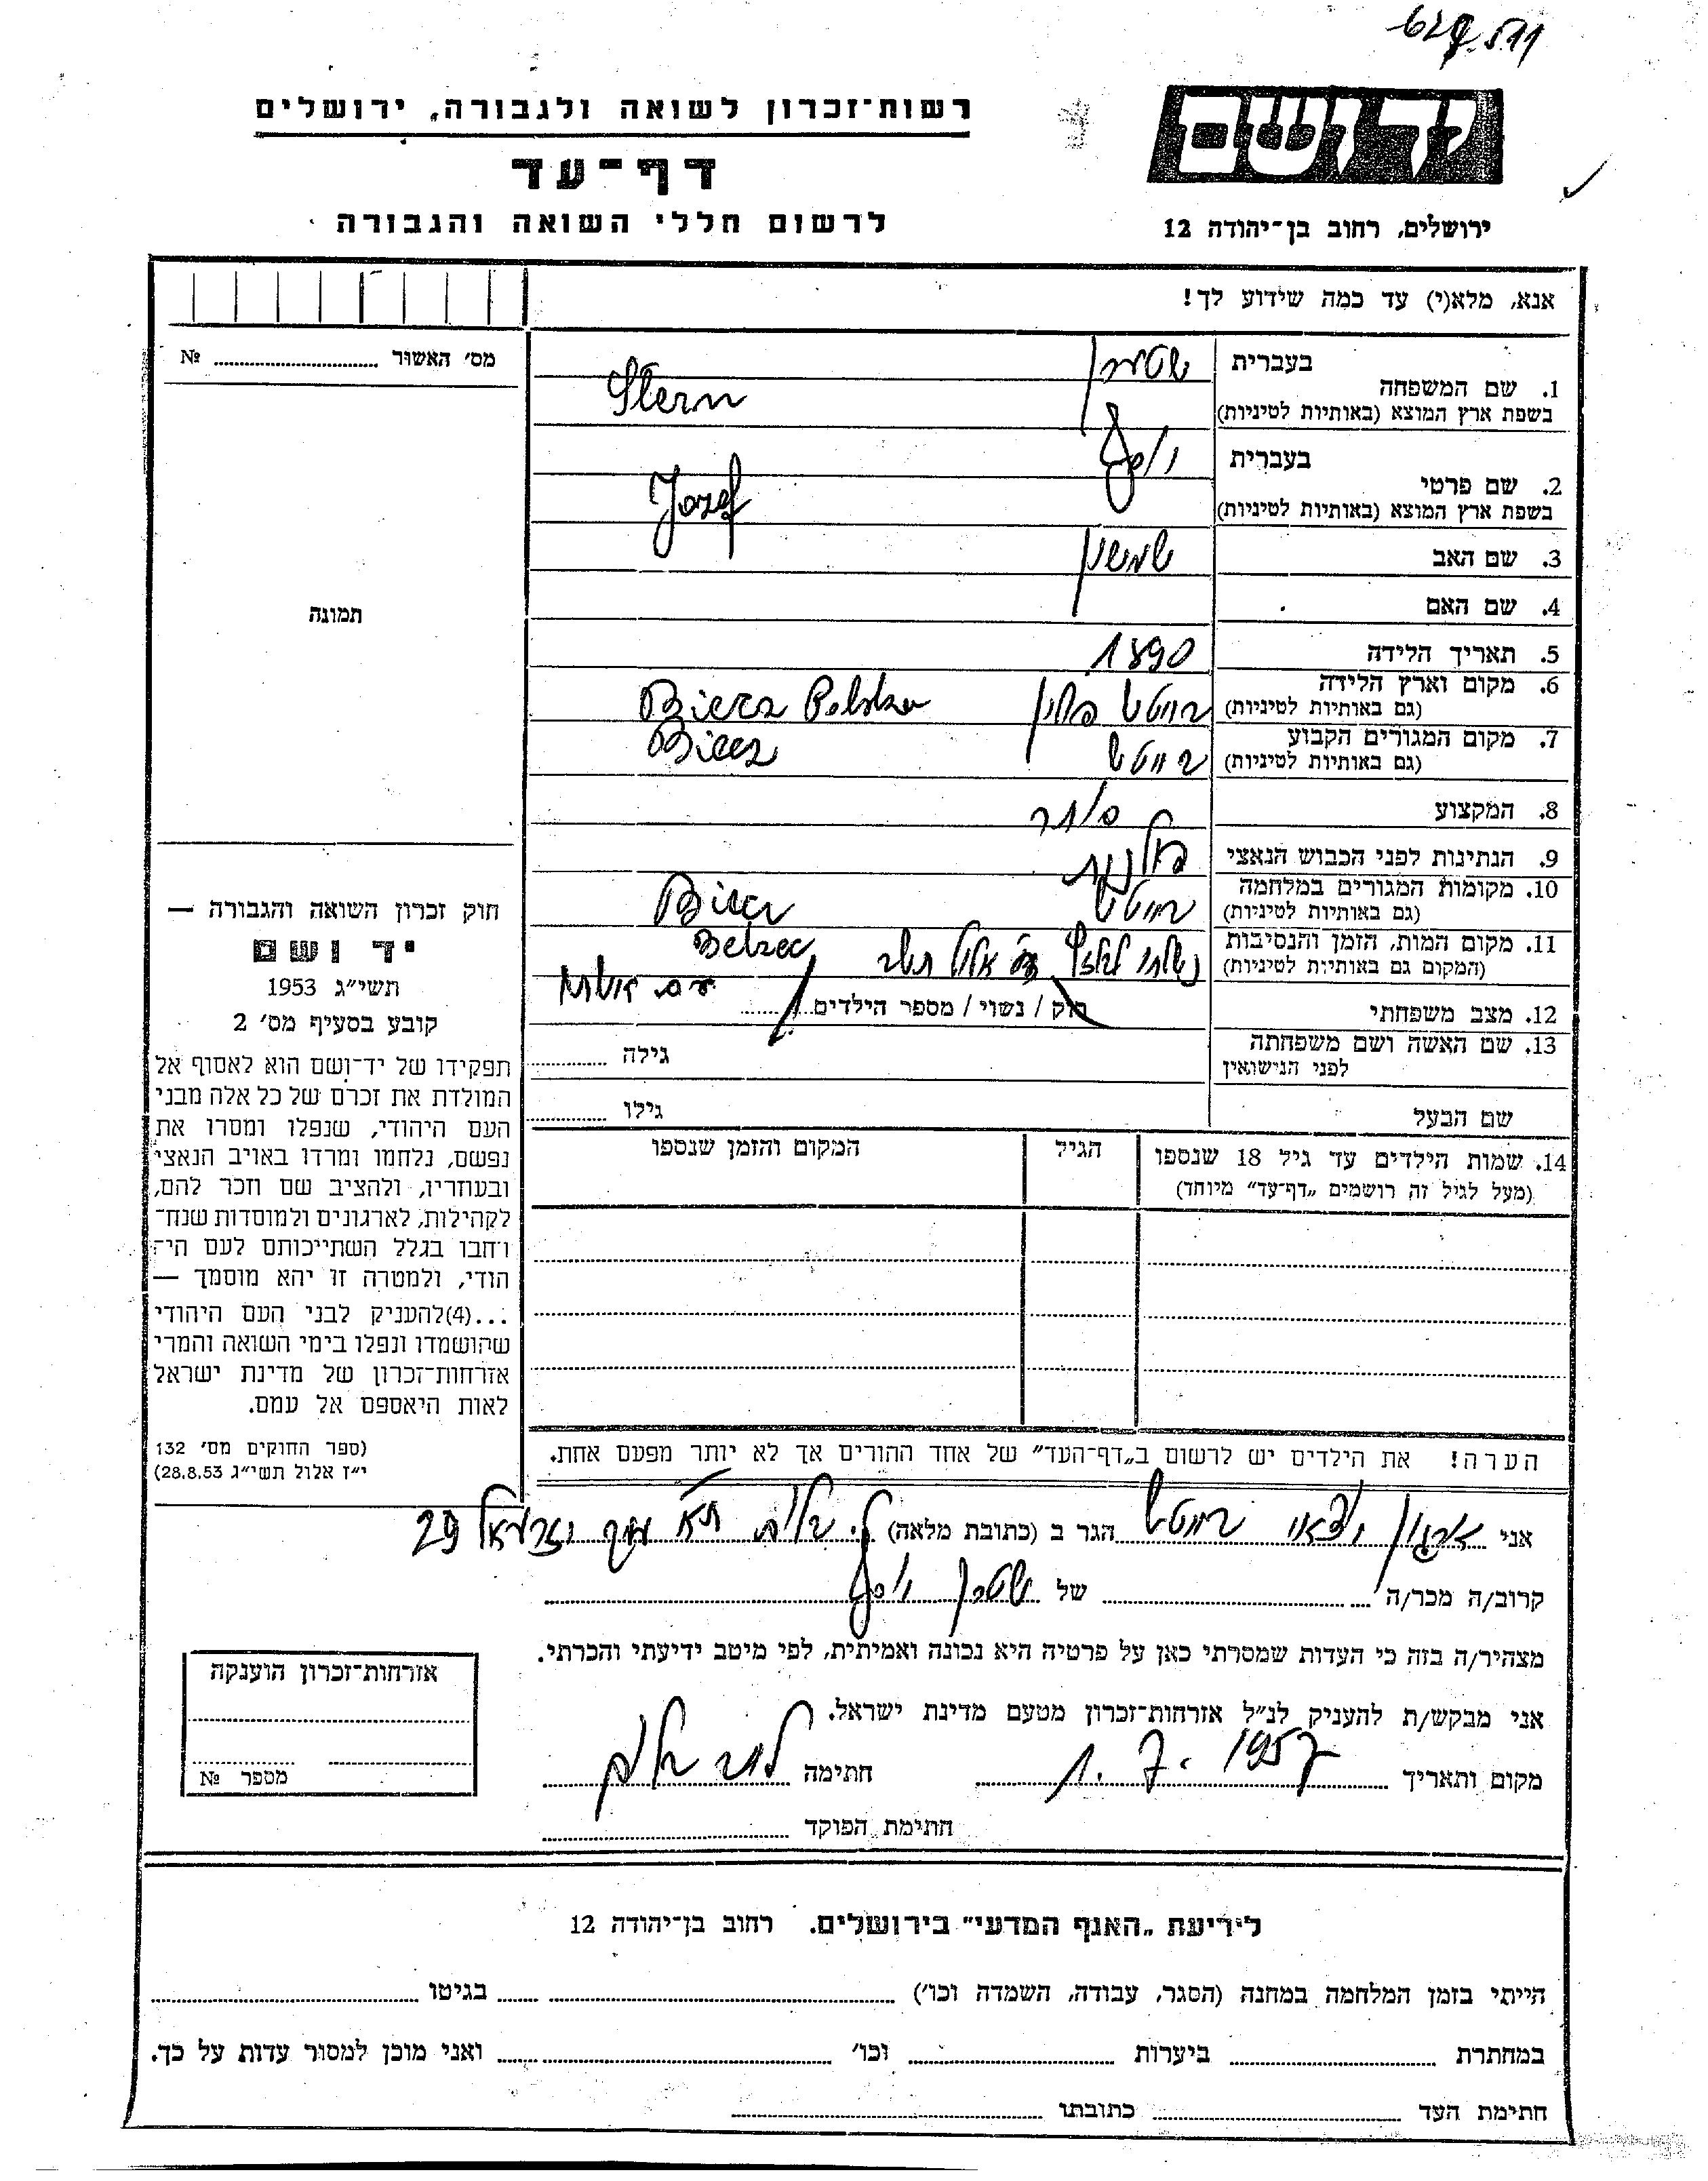 יד ושם
רשות־זכרון לשואה ולגבורה, ירושלים
דף־עד
לרשום חללי השואה והגבורה
ירושלים, רחוב בן־יהודה 12
אנא, מלא(י) עד כמה שידוע לך!
מס׳ האשור № 
תמונה
1. שם המשפחה בעברית שטרן
בשפת ארץ המוצא (באותיות לטיניות) Stern
2. שם פרטי בעברית יוסף
בשפת ארץ המוצא (באותיות לטיניות) Jozef
3. שם האב שמשון
4. שם האם
5. תאריך הלידה 1890
6. מקום וארץ הלידה
(גם באותיות לטיניות) פולין Biecz Polska
7. מקום המגורים הקבוע
(גם באותיות לטיניות) Biecz
8. המקצוע סוחר
9. הנתינות לפני הכבוש הנאצי פולנית
10. מקומות המגורים במלחמה
(גם באותיות לטיניות) Biecz
11. מקום המות, הזמן והנסיבות
(המקום גם באותיות לטיניות) אלול תש״ב Belzec
12. מצב משפחתי רוק / נשוי / מספר הילדים
13. שם האשה ושם משפחתה
לפני הנישואין גילה
שם הבעל גילו
14. שמות הילדים עד גיל 18 שנספו הגיל המקום והזמן שנספו
(מעל לגיל זה רושמים „דף־עד״ מיוחד)
הערה! את הילדים יש לרשום ב„דף־העד״ של אחד ההורים אך לא יותר מפעם אחת.
חוק זכרון השואה והגבורה —
יד ושם
תשי״ג 1953
קובע בסעיף מס׳ 2
תפקידו של יד־ושם הוא לאסוף אל
המולדת את זכרם של כל אלה מבני
העם היהודי, שנפלו ומסרו את
נפשם, נלחמו ומרדו באויב הנאצי
ובעוזריו, ולהציב שם וזכר להם,
לקהילות, לארגונים ולמוסדות שנח־
רחבו בגלל השתייכותם לעם הי־
הודי, ולמטרה זו יהא מוסמך —
...(4)להעניק לבני העם היהודי
שהושמדו ונפלו בימי השואה והמרי
אזרחות־זכרון של מדינת ישראל
לאות היאספם אל עמם.
(ספר החוקים מס׳ 132
י״ז אלול תשי״ג 28.8.53)
אני ארגון יוצאי הגר ב (כתובת מלאה) ת״א עמק יזרעאל 29
קרוב/ה מכר/ה של שטרן יוסף
מצהיר/ה בזה כי העדות שמסרתי כאן על פרטיה היא נכונה ואמיתית, לפי מיטב ידיעתי והכרתי.
אני מבקש/ת להעניק לנ״ל אזרחות־זכרון מטעם מדינת ישראל.
מקום ותאריך 1.7.1957 חתימה
חתימת הפוקד
אזרחות־זכרון הוענקה
מספר №
לידיעת „האגף המדעי״ בירושלים. רחוב בן־יהודה 12
הייתי בזמן המלחמה במחנה (הסגר, עבודה, השמדה וכו׳) בגיטו
במחתרת ביערות וכו׳ ואני מוכן למסור עדות על כך.
חתימת העד כתובתו